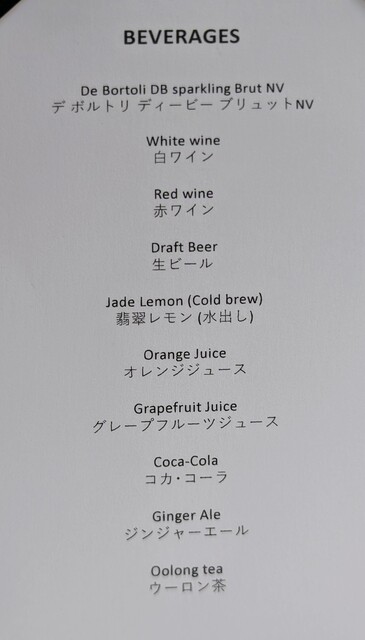 BEVERAGES
De Bortoli DB sparkling Brut NV
デ ボルトリ ディービー ブリュットNV
White wine
白ワイン
Red wine
赤ワイン
Draft Beer
生ビール
Jade Lemon (Cold brew)
翡翠レモン (水出し)
Orange Juice
オレンジジュース
Grapefruit Juice
グレープフルーツジュース
Coca-Cola
コカ・コーラ
Ginger Ale
ジンジャーエール
Oolong tea
ウーロン茶